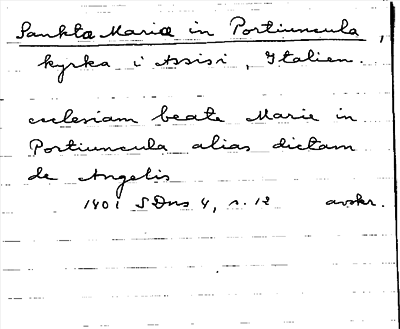 Sankta Maria in Portiuncula,
kyrka i Assisi, Italien.
ecclesiam beate Marie in
Portiuncula alias dictam
de Angelis
1401 SDns 4, s. 12 avskr.